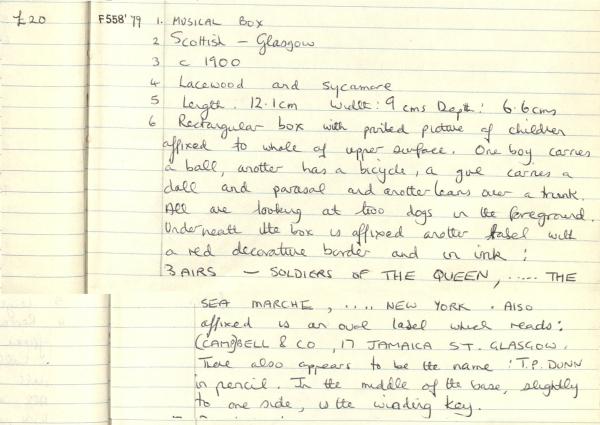 £20 F558'79 1. MUSICAL BOX
2 Scottish – Glasgow
3 c 1900
4 Lacewood and sycamore
5 Length: 12.1cm Width: 9 cms Depth: 6.6cms
6 Rectangular box with printed picture of children
affixed to whole of upper surface. One boy carries
a ball, another has a bicycle, a girl carries a
doll and parasol and another leans over a trunk.
All are looking at two dogs in the foreground.
Underneath the box is affixed another label with
a red decorative border and in ink:
3 AIRS – SOLDIERS OF THE QUEEN, ..... THE
SEA MARCHE, .... NEW YORK. Also
affixed is an oval label which reads:
(CAMPBELL & CO, 17 JAMAICA ST. GLASGOW.
There also appears to be the name: T.P. DUNN
in pencil. In the middle of the base, slightly
to one side, is the winding key.